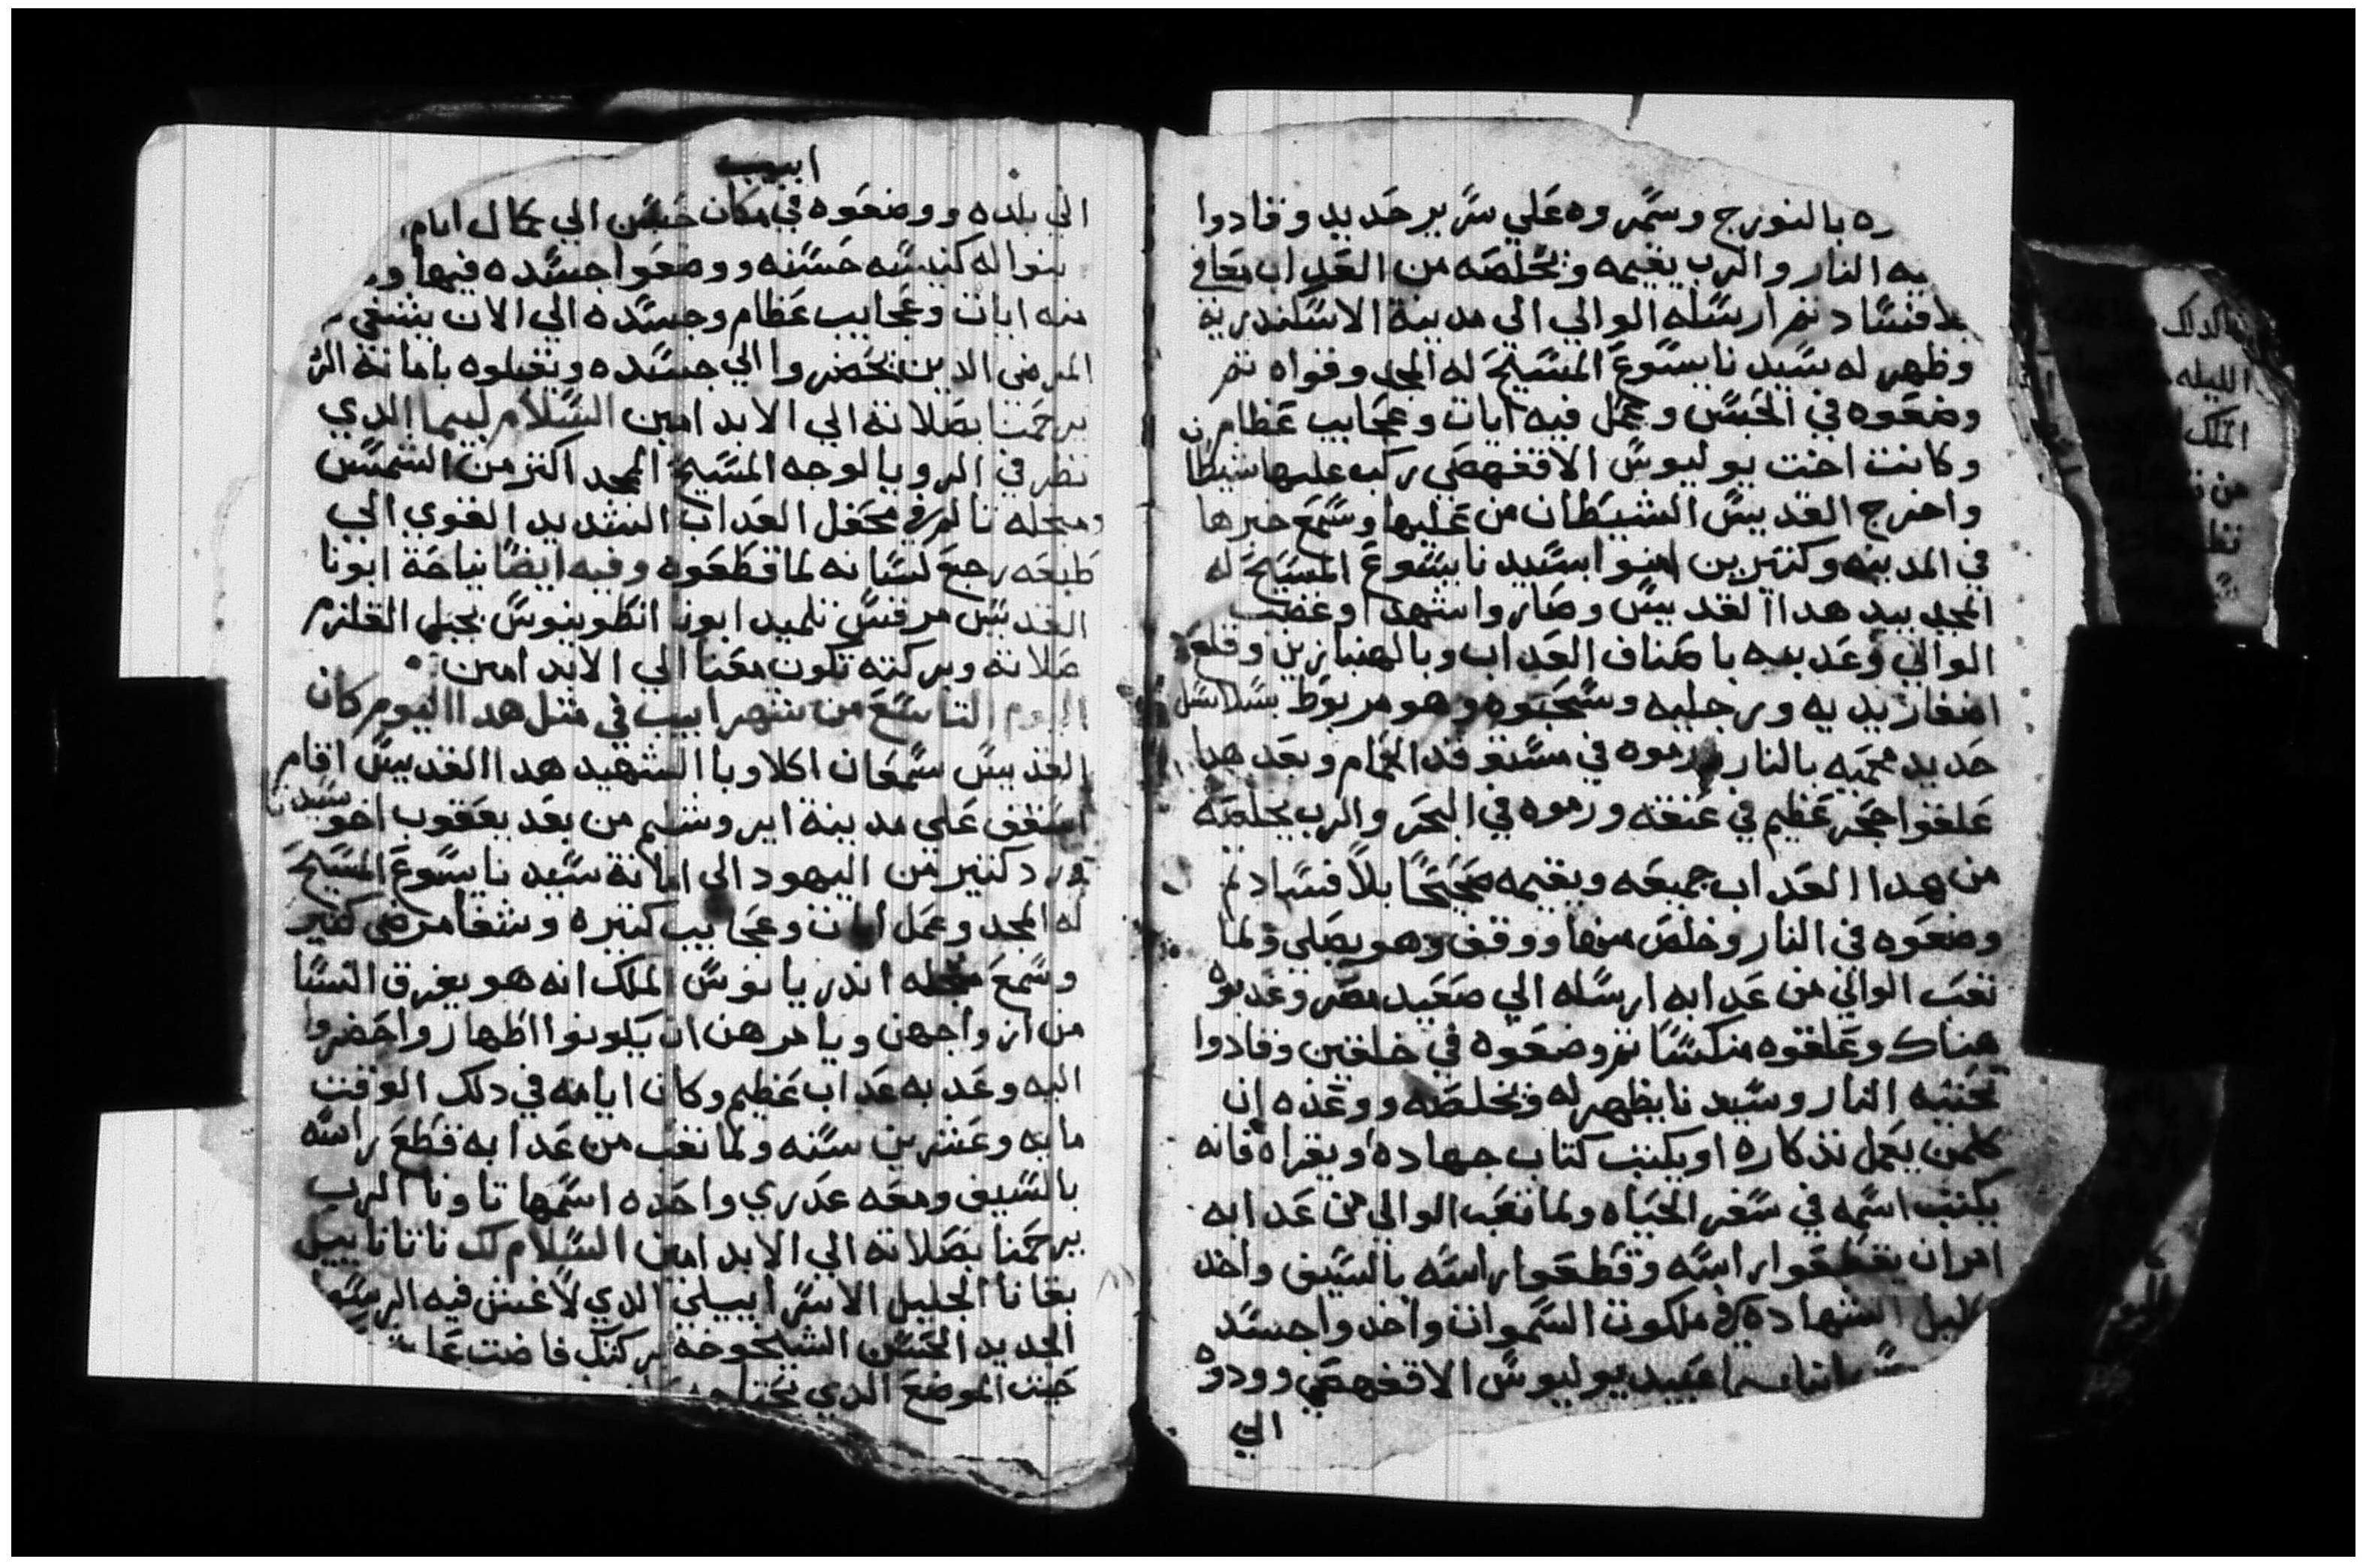 ره بالنورج وسمروه علي سرير حديد وقادوا
يه النار والرب يقيمه ويخلصه من العداب معافي
بلا فساد ثم ارسله الوالي الي مدينة الاسكندرية
وظهر له سيدنا يسوع المسيح له المجد وقواه ثم
وضعوه في الحبس وعمل فيه ايات وعجايب عظام
وكانت اخت يوليوس الاقفهصي ركب عليها شيطا
واخرج القديس الشيطان من عليها وسمع خبرها
في المدينه وكثيرين امنوا بسيدنا يسوع المسيح له
المجد بيد هدا القديس وصاروا شهدا وغضب
الوالي وعدبه باصناف العداب وبالهنبازين وقلع
اضفار يديه ورجليه وسحبوه وهو مربوط بسلاسل
حديد محميه بالنار ورموه في مستوقد الحمام وبعد هدا
علقوا حجر عظيم في عنقه ورموه في البحر والرب يخلصه
من هدا العداب جميعه ويقيمه صحيحا بلا فساد ثم
وضعوه في النار وخلص منها ووقف وهو يصلي ولما
تعب الوالي من عدابه ارسله الي صعيد مصر وعدبوه
هناك وعلقوه منكسا ثم وضعوه في خلقين وقادوا
تحتيه النار وسيدنا يظهر له ويخلصه ووعده ان
كلمن يعمل تدكاره او يكتب كتاب جهاده ويقراه فانه
يكتب اسمه في سفر الحياه ولما تعب الوالي من عدابه
امر ان يقطعوا راسه وقطعوا راسه بالسيف واخد
كليل الشهاده في ملكوت السموات واخدوا جسد
عبيد يوليوس الاقفهصي وودوه
الي
ابيب
الي بلده ووضعوه في مكان حسن الي كمال ايام
بنوا له كنيسه حسنه ووضعوا جسده فيها و
منه ايات وعجايب عظام وجسده الي الان يشفي
المرضي الدين يحضروا الي جسده ويقبلوه بامانه الر
يرحمنا بصلاته الي الابد امين السلام لبيما الدي
نظر في الرويا لوجه المسيح الممجد اكثر من الشمس
ومجله تالم في محفل العداب الشديد القوي الي
طبعه رجع لسانه لما قطعوه وفيه ايضا نياحة ابونا
القديس مرقس تلميد ابونا انطونيوس بجبل القلزم
صلاته وبركته تكون معنا الي الابد امين
اليوم التاسع من شهر ابيب في مثل هدا اليوم كان
القديس سمعان اكلاوبا الشهيد هدا القديس اقام
اسقف علي مدينة ايروشليم من بعد يعقوب اخو سيدنا
ورد كثير من اليهود الي امانة سيدنا يسوع المسيح
له المجد وعمل ايات وعجايب كثيره وشفا مرضي كثير
وسمع مجله اندريانوس الملك انه هو يفرق النسا
من ازواجهن ويامرهن ان يكونوا اطهار واحضروا
اليه وعدبه عداب عظيم وكان ايامه في دلك الوقت
مايه وعشرين سنه ولما تعب من عدابه قطع راسه
بالسيف ومعه عدري واحده اسمها تاونا الرب
يرحمنا بصلاته الي الابد امين السلام لك ناتانايل
بقانا الجليل الاسراييلي الدي لا غش فيه الرسو
الجديد الحسن الشيخوخه بركتك فاضت
حيت الموضع الدي
بعالدلك
الليله
الملك